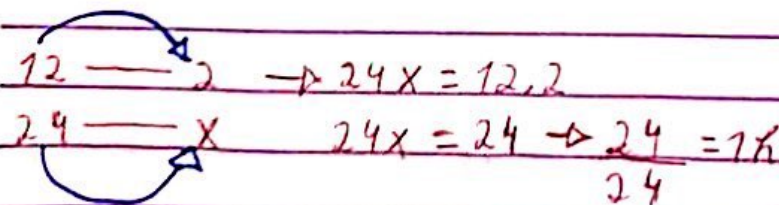 12 — 2 → 24x = 12.2
24 — x 24x = 24 → 24/24 = 1h